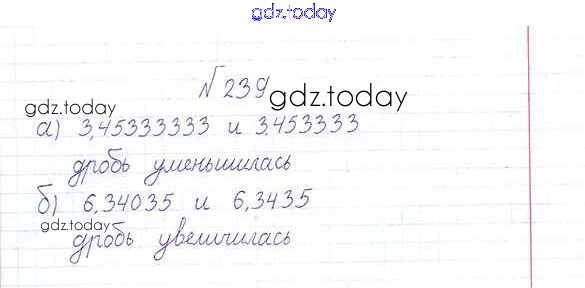 gdz.today
№ 239
gdz.today
gdz.today
а) 3,45333333 и 3,453333
дробь уменьшилась
б) 6,34035 и 6,3435
gdz.today
дробь увеличилась